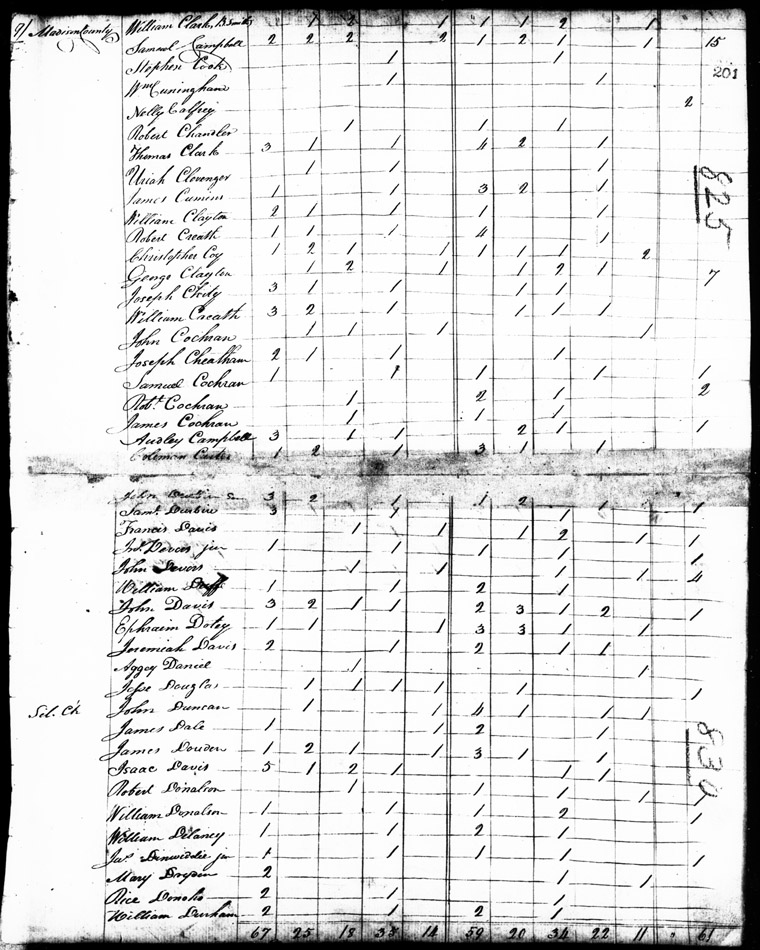 91 Madison County William Clark, B Smith 1 2 1 1 1 2 1
Samuel Campbell 2 2 2 2 1 2 1 1 15
Stephen Cook 1 1
201
Wm Cuningham 1 1
Nelly Calfrey 2
Robert Chandler 1 1 1
Thomas Clark 3 1 1 4 2 1
Uriah Clevenger 1 1 1
James Cumins 1 1 3 2 1
825
William Clayton 2 1 1 1 1
Robert Creath 1 1 1 4 1
Christopher Coy 1 2 1 1 1 1 1 2
George Clayton 1 2 1 1 2 1 7
Joseph 3 1 1 1 1
William Creath 3 2 1 1 1 1
John Cochran 1 1 1 1
Joseph Cheatham 2 1 1 1
Samuel Cochran 1 1 1 1 1
Robt. Cochran 1 2 1 2
James Cochran 1 1 1
Audley Campbell 3 1 1 2 1 1
Coleman Carter 1 2 1 3 1 1
John 3 2 1 1 2 1 1
Saml. Durbin 3 1 1 1
Francis Davis 1 1 1 2 1 1
Jno. Devors jur 1 1 1 1
John Devors 1 1 1 1 1
William Duff 1 1 2 1 4
John Davis 3 2 1 1 2 3 1 2
Ephraim Dotey 1 1 1 3 3 1 1 1
Jeremiah Davis 2 1 2 1 1
Aggey Daniel 1 1
Jesse Douglas 1 1 1 1 1
Sil. Ck John Duncan 1 1 4 1 1 1 1
James Dale 1 1 2 1
830
James Douden 1 2 1 1 3 1 1
Isaac Davis 5 1 2 1 1 1
Robert Donalson 1 1 1 1 1
William Donalson 1 1 1 2 1
William Delaney 1 1 2 1
Jas. Dinwiddie jur 1 1 1 1 1
Mary Dryden 2 1 1
Rice Donoho 2 1 1
William Durham 2 1 2 1
67 25 18 14 59 20 34 22 11 61